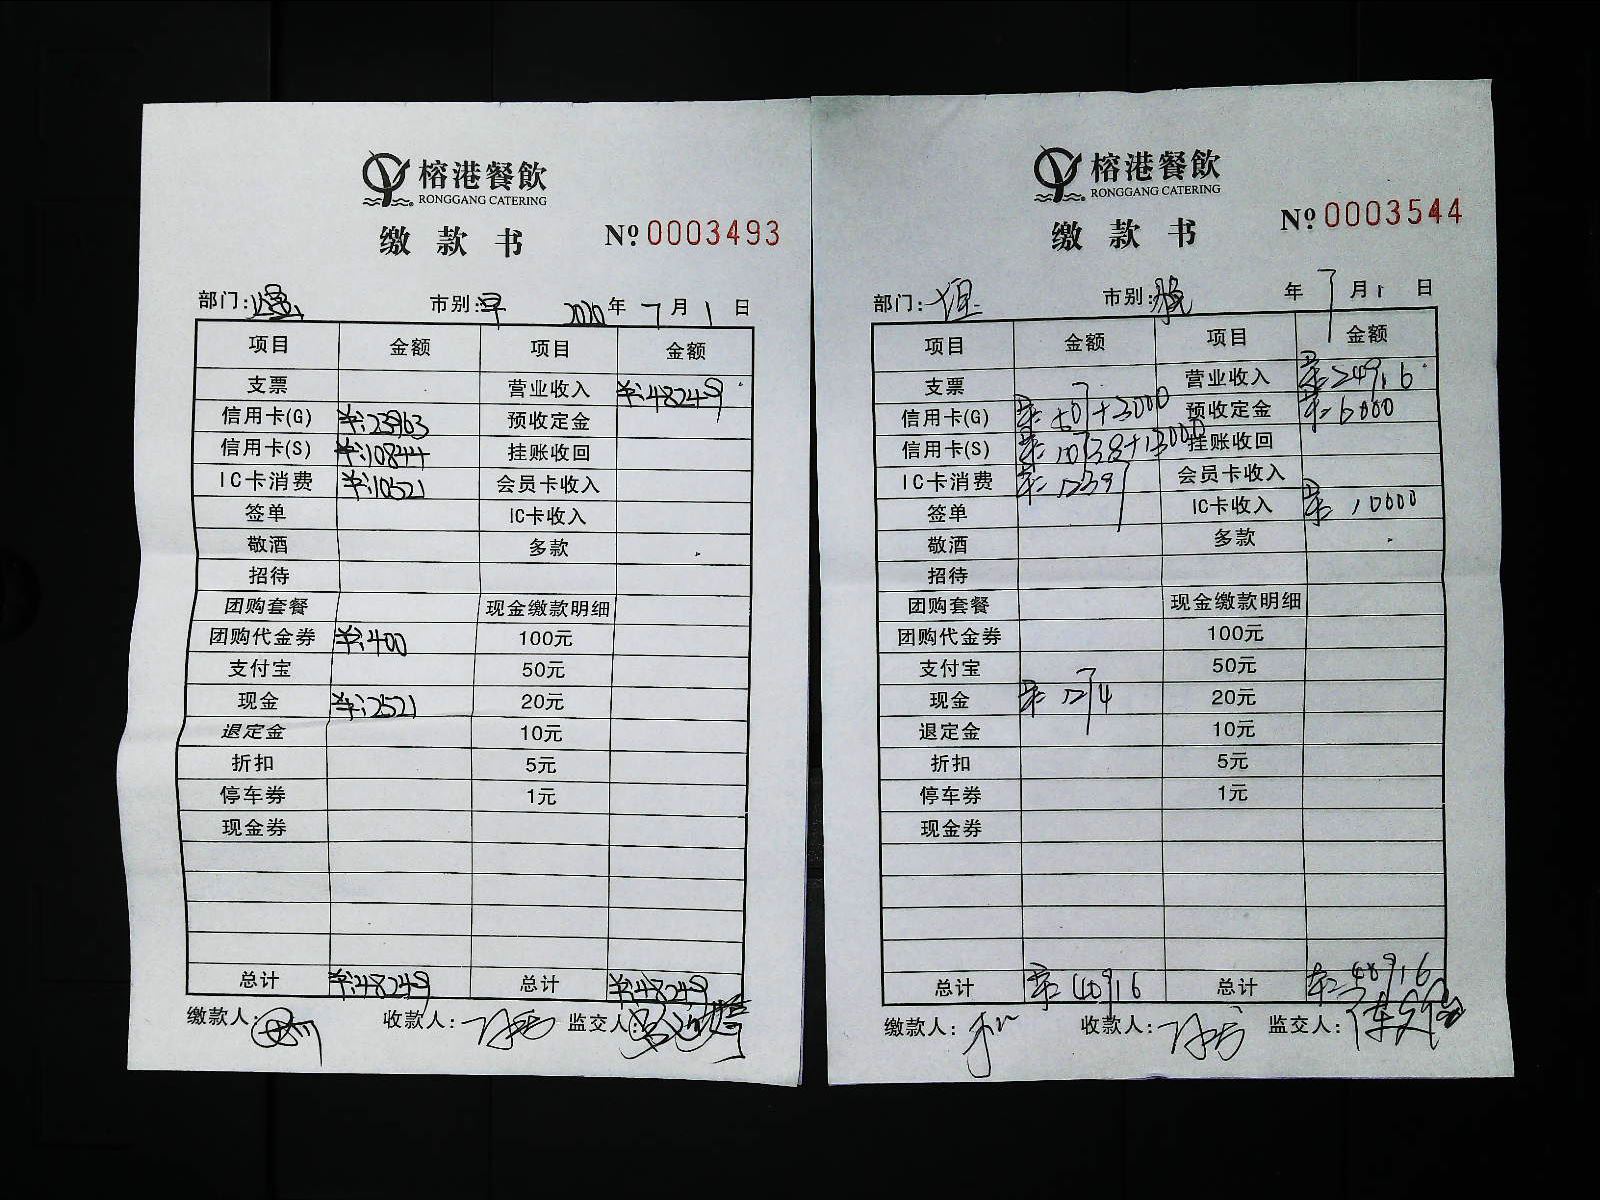 榕港餐飲
RONGGANG CATERING
缴款书 No. 0003493
部门: 市别:早 2020年7月1日
项目 金额 项目 金额
支票 营业收入 ¥:48249
信用卡(G) ¥:23963 预收定金
信用卡(S) ¥:10844 挂账收回
IC卡消费 ¥:10521 会员卡收入
签单 IC卡收入
敬酒 多款
招待
团购套餐 现金缴款明细
团购代金券 ¥:400 100元
支付宝 50元
现金 ¥:2521 20元
退定金 10元
折扣 5元
停车券 1元
现金券
总计 ¥:48249 总计 ¥:48249
缴款人: 收款人: 监交人:
榕港餐飲
RONGGANG CATERING
缴款书 No. 0003544
部门: 市别:晚 年7月1日
项目 金额 项目 金额
支票 营业收入 ¥:24916
信用卡(G) 预收定金 ¥:6000
信用卡(S) ¥:10738+13000 挂账收回
IC卡消费 会员卡收入
签单 IC卡收入 ¥:10000
敬酒 多款
招待
团购套餐 现金缴款明细
团购代金券 100元
支付宝 50元
现金 ¥:1274 20元
退定金 10元
折扣 5元
停车券 1元
现金券
总计 ¥:40916 总计 ¥:40916
缴款人: 收款人: 监交人: